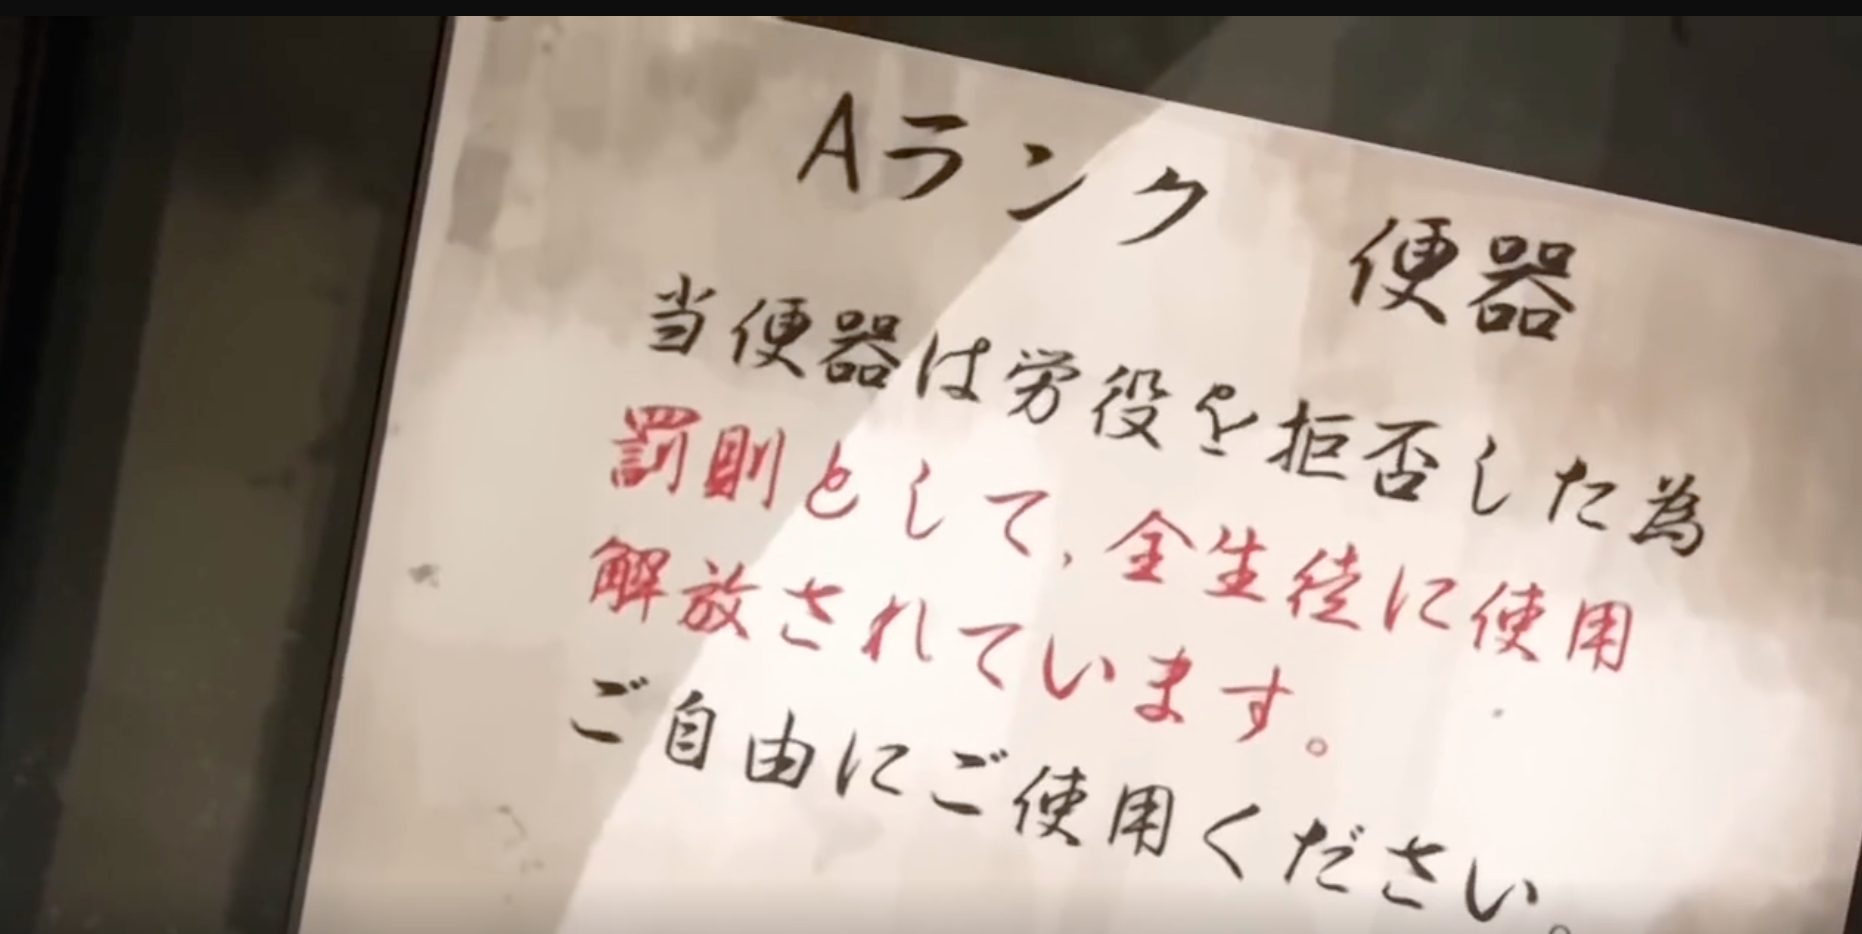 Aランク 便器
当便器は労役を拒否した為
罰則として、全生徒に使用
解放されています。
ご自由にご使用ください。